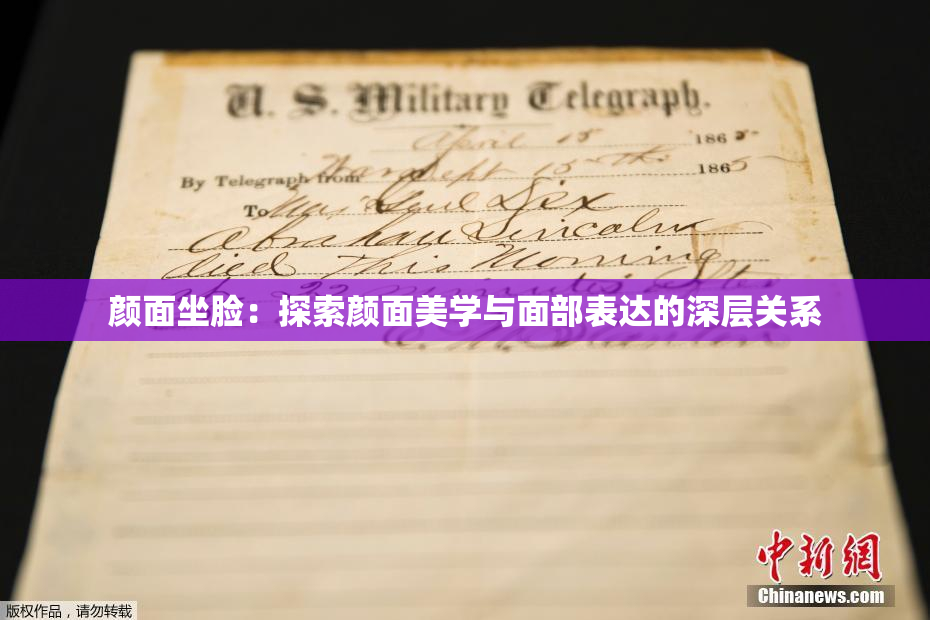 U. S. Military Telegraph.
April 15 1865
By Telegraph from War Dept 15th 1865
To Maj Genl Dix
Abraham Lincoln
died This Morning
at 22 minutes after
颜面坐脸：探索颜面美学与面部表达的深层关系
E. M. Stanton
中新网
Chinanews.com
版权作品，请勿转载